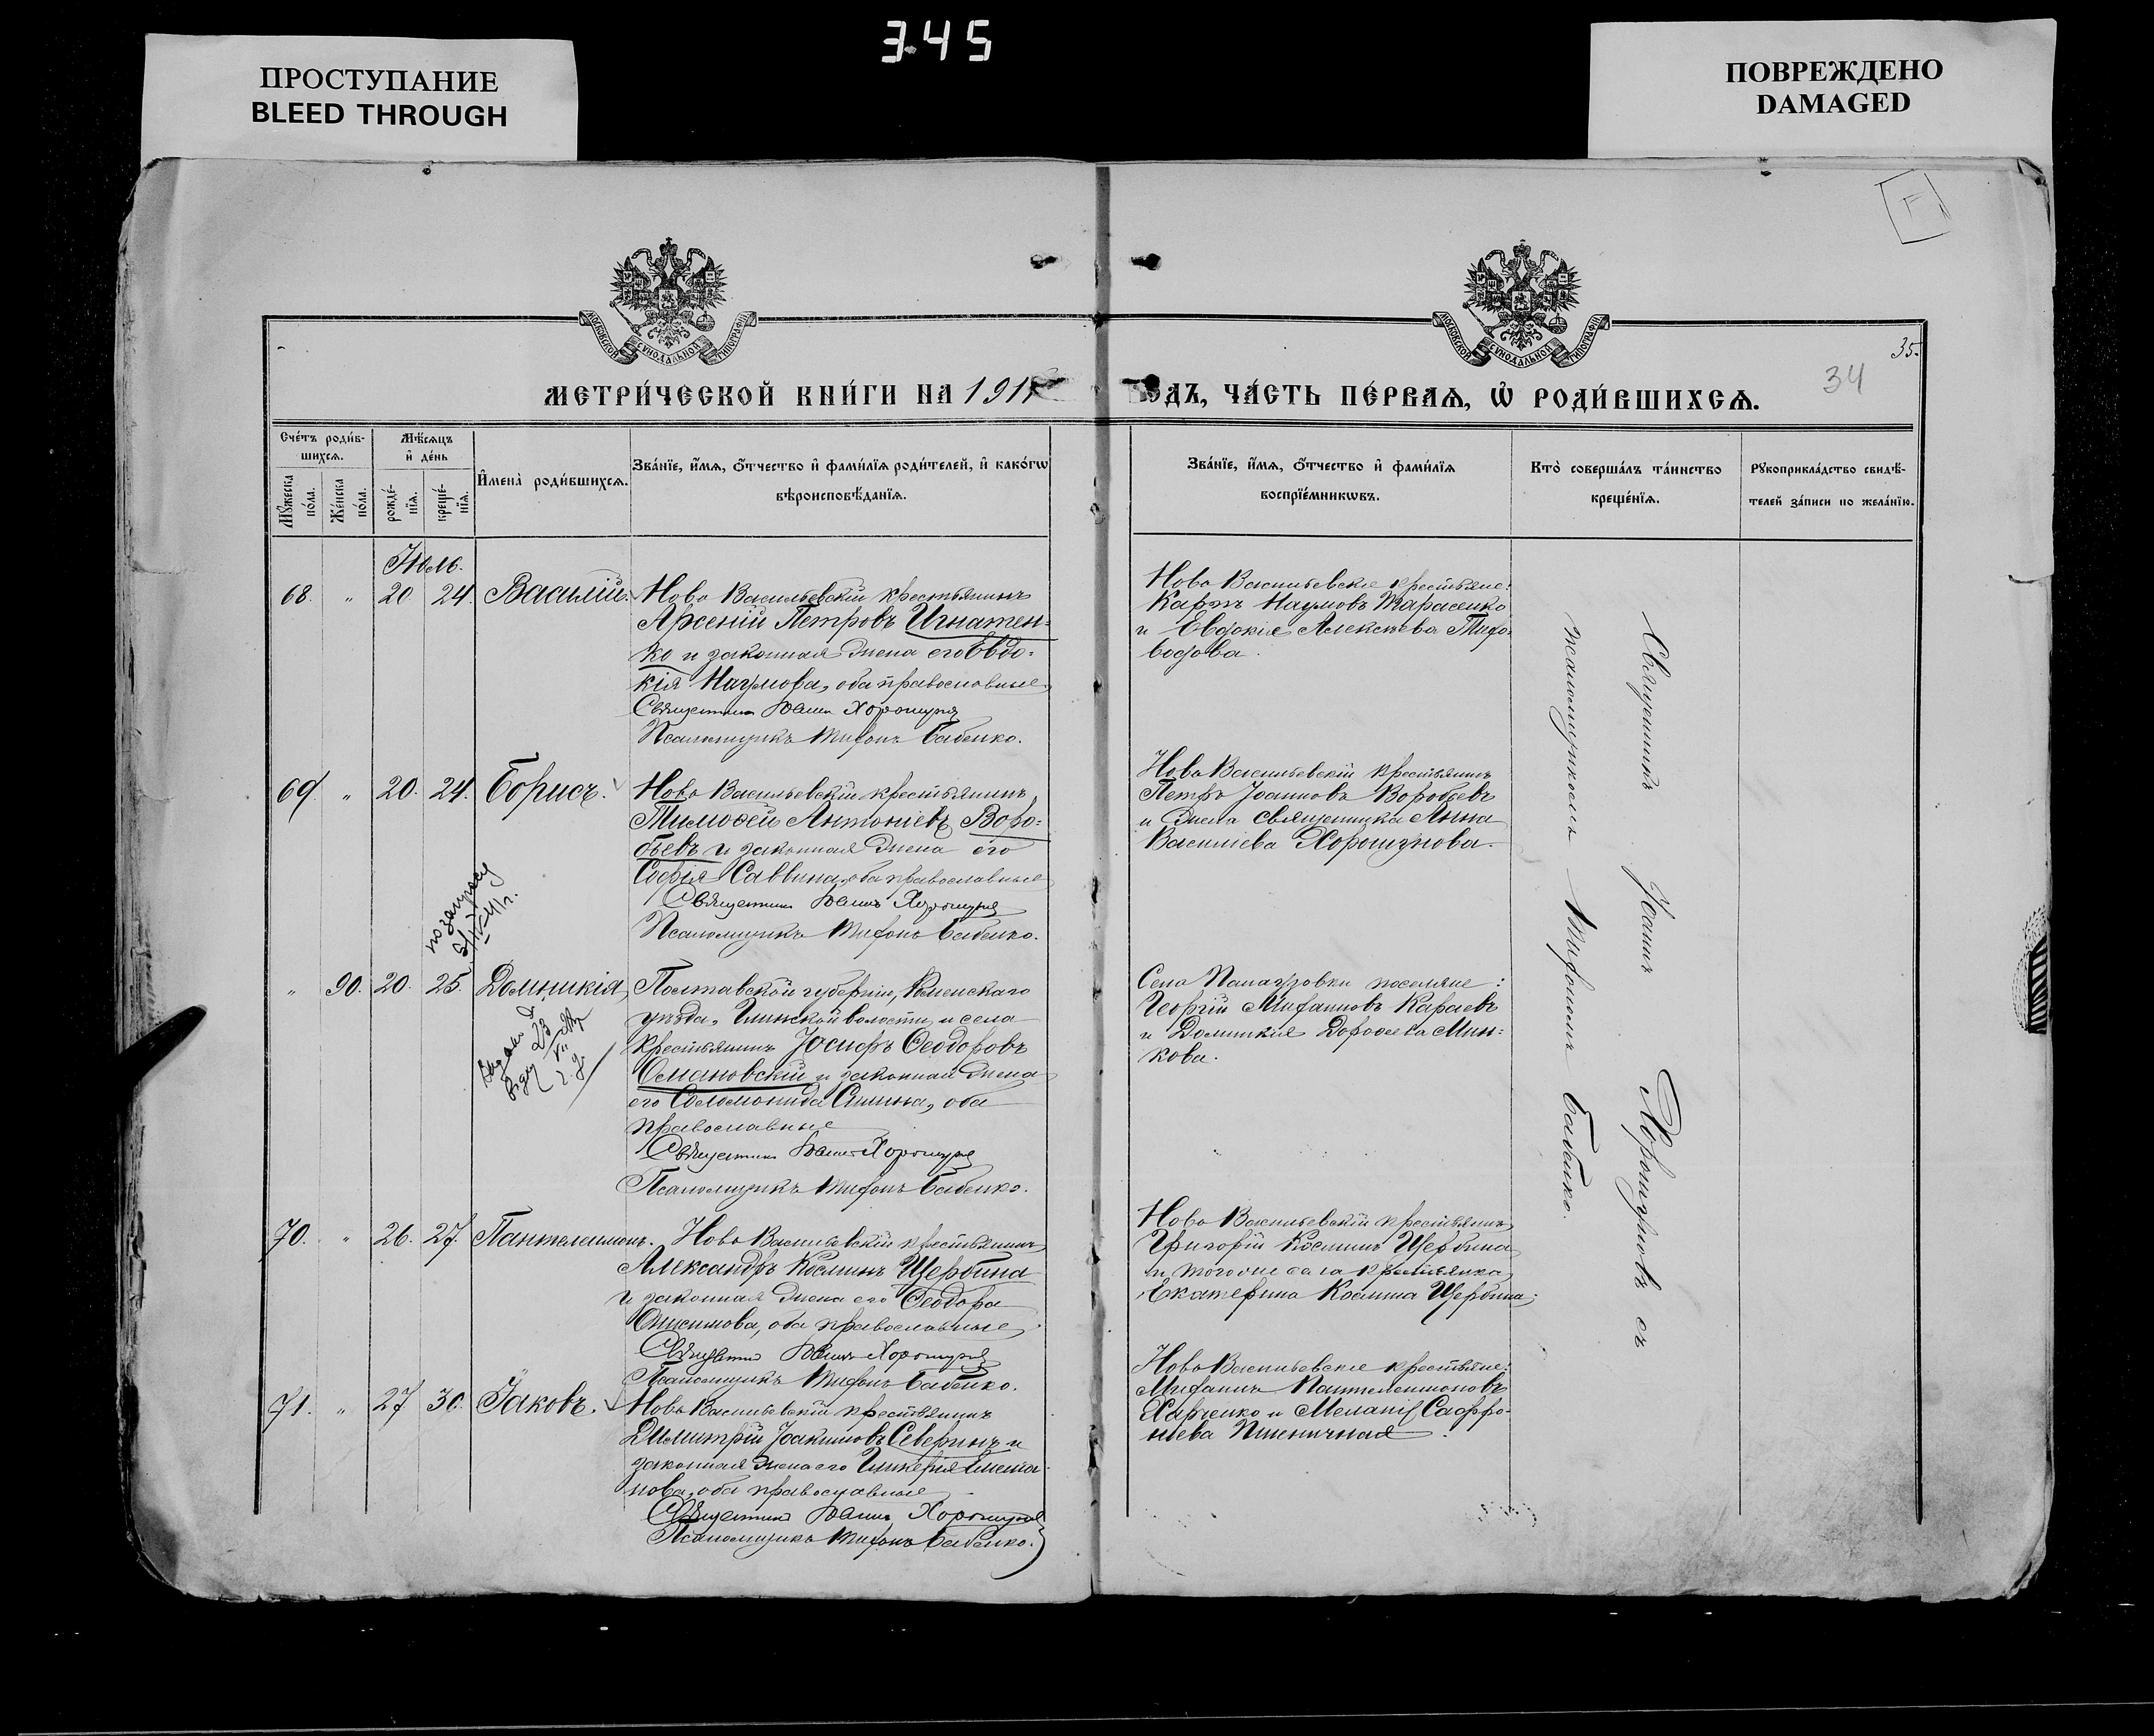 345
ПРОСТУПАНИЕ
BLEED THROUGH
ПОВРЕЖДЕНО
DAMAGED
МОСКОВСКОЙ СѴНОДАЛЬНОЙ ТИПОГРАФІИ
МОСКОВСКОЙ СѴНОДАЛЬНОЙ ТИПОГРАФІИ
35.
34
МЕТРИ́ЧЕСКОЙ КНИ́ГИ НА 191
ОДЪ, ЧА́СТЬ ПЕ́РВАѦ, Ѡ҆ РОДИ́ВШИХСѦ.
Сче́тъ роди́в-
шихсѧ.
Мꙋ́жеска по́ла.
Же́нска по́ла.
Мѣ́сѧцъ
и҆ де́нь
рожде́-нїѧ.
креще́-нїѧ.
И҆мена̀ роди́вшихсѧ.
Зва́нїе, и҆́мѧ, ѻ҆́тчество и҆ фами́лїѧ роди́телей, и҆ како́гѡ
вѣроисповѣ́данїѧ.
Зва́нїе, и҆́мѧ, ѻ҆́тчество и҆ фами́лїѧ
воспрїе́мникѡвъ.
Кто̀ соверша́лъ та́инство
креще́нїѧ.
Рꙋкоприкла́дство свидѣ́-
телей за́писи по жела́нїю.
Іюль.
68. " 20 24. Василій. Ново Васильевскій крестьянинъ
Арсеній Петровъ Игнатен=
ко и законная жена его Евдо=
кія Наумова, оба православные
Священникъ Іоаннъ Хорошунов
Псаломщикъ Трифонъ Бабенко.
Ново Васильевскіе крестьяне:
Карпъ Наумовъ Тарасенко
и Евдокія Алексѣева
69. " 20. 24. Борисъ. Ново Васильевскій крестьянинъ
Тимоѳей Антоніевъ Воро=
бьевъ и законная жена его
Софія Саввина, оба православные
Священникъ Іоаннъ Хорошунов
Псаломщикъ Трифонъ Бабенко.
Ново Васильевскій крестьянинъ
Петръ Іоанновъ Воробьевъ
и жена священника Анна
Василіева Хорошунова.
по запросу
" 90. 20. 25. Домникія, Полтавской губерніи, Роменскаго
уѣзда, Глинской волости и села
крестьянинъ Іосифъ Ѳеодоровъ
Османовскій и законная жена
его Соломонида, оба
православные
Священникъ Іоаннъ Хорошунов
Псаломщикъ Трифонъ Бабенко.
Села Папаузовки поселяне:
Георгій Митрофановъ Караевъ
и Домникія Дороѳеева Мин=
кова.
70. " 26. 27. Пантелеимонъ. Ново Васильевскій крестьянинъ
Александръ Косминъ Щербина
и законная жена его Ѳеодора
Онисимова, оба православные
Священникъ Іоаннъ Хорошунов
Псаломщикъ Трифонъ Бабенко.
Ново Васильевскій крестьянинъ
Григорій Косминъ Щербина
и того же села крестьянка
Екатерина Космина Щербина.
71. " 27 30. Іаковъ. Ново Васильевскій крестьянинъ
Димитрій Іоакимовъ Северинъ и
законная жена его Гликерія
нова, оба православные
Священникъ Іоаннъ Хорошунов
Псаломщикъ Трифонъ Бабенко.
Ново Васильевскіе крестьяне:
Митрофанъ Пантелеимоновъ
Харченко и Меланія Софро=
ніева Пшеничная.
Священникъ Іоаннъ Хорошуновъ съ
псаломщикомъ Трифономъ Бабенко.